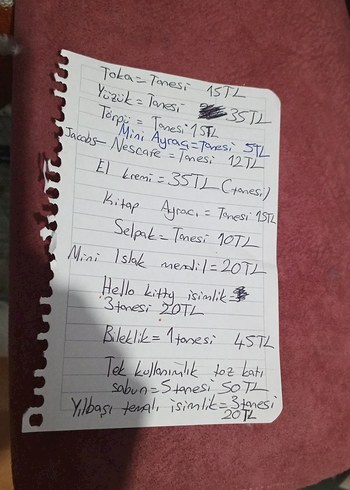 Toka = Tanesi 15TL
Yüzük = Tanesi 35TL
Törpü = Tanesi 15TL
Mini Ayraç = Tanesi 5TL
Jacobs - Nescafe = Tanesi 12TL
El kremi = 35TL (tanesi)
Kitap Ayracı = Tanesi 15TL
Selpak = Tanesi 10TL
Mini Islak mendil = 20TL
Hello kitty isimlik =
3 tanesi 20TL
Bileklik = 1 tanesi 45TL
Tek kullanımlık toz katı
sabun = 5 tanesi 50TL
Yılbaşı temalı isimlik = 3 tanesi
20TL